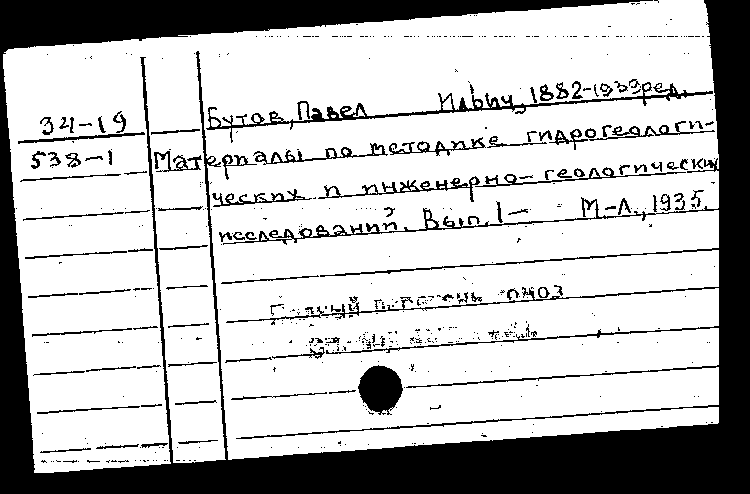 34-19 Бутов, Павел Ильич, 1882-1939 ред.
538-1 Материалы по методике гидрогеологи-
ческих и инженерно-геологических
исследований. Вып. 1— М-Л., 1935.
Полный перечень